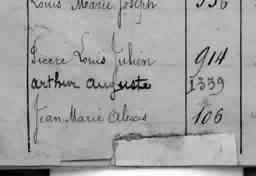 Louis Marie Joseph 336
Pierre Louis Julien 914
Arthur Auguste 1339
Jean Marie Alexis 106